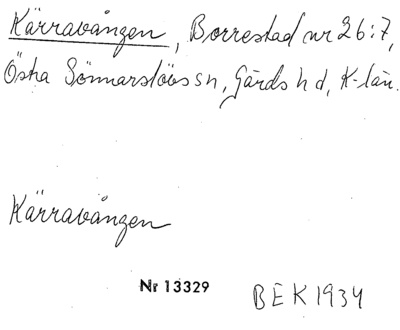 Kärravången, Borrestad nr 26:7,
Östra Sönnarslövs sn, Gärds hd, K-län.
Kärravången
Nr 13329
BEK 1934